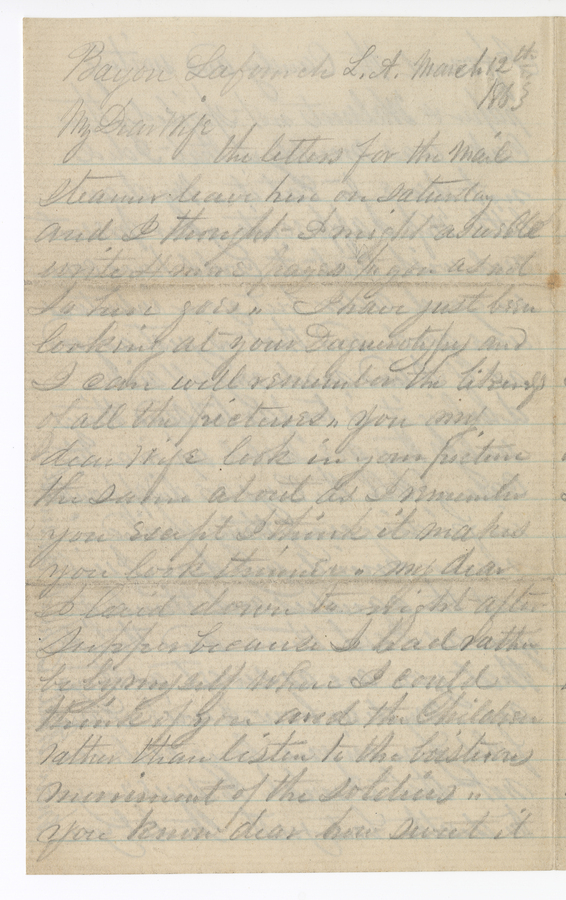 Bayou Lafourch L.A. March 12th
1863
My Dear Wife
the letters for the Mail
steamer leave here on Saturday
and I thought I might as well
write 4 more pages to you as not
I have just been
looking at your Daguerotype and
I can well remember the likeness
of all the pictures " you my
dear Wife look in your picture
the same about as I remember
you except I think it makes
you look thinner " my dear
I laid down to night after
supper because I had rather
be by myself where I could
think of you and the Children
rather than listen to the boisterous
merriment of the soldiers "
you know dear how sweet it